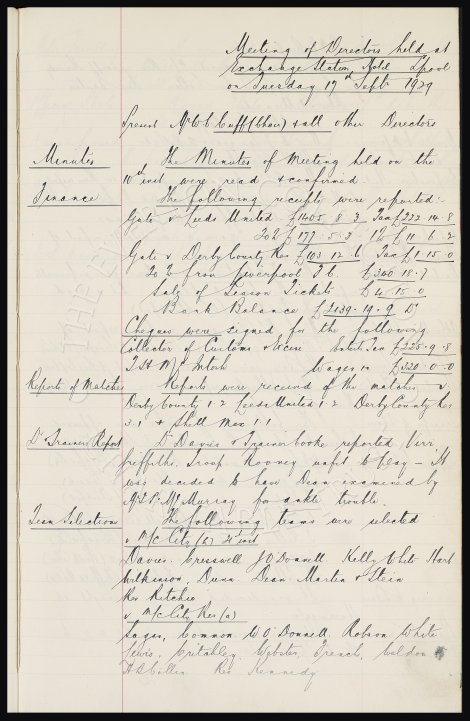 Meeting of Directors held at
Exchange Station Hotel L'pool
on Tuesday 17th Sept 1929
Present Mr W C Cuff (Chair) & all other Directors
Minutes The Minutes of Meeting held on the
10th inst were read & confirmed
Finance The following receipts were reported:-
Gate v Leeds United £1405. 8. 3 Tax £222 14. 8
20% £177. 5. 3 1% £11. 6. 2
Gate v Derby County Res £103 12. 6 Tax £1. 15. 0
20% from Liverpool F.C. £340 18. 7
Sale of Season Tickets £4. 15. 0
Bank Balance £2139. 19. 9 Dr
Cheques were signed for the following
Collector of Customs & Excise Ent Tax £225. 9. 8
T. H. McIntosh Wages £320. 0. 0
Reports of Matches Reports were received of the matches v
Derby County 1-2 Leeds United 1-2 Derby County Res
3-1 & Shell Mex 1-1
Dr Trainers Report Dr Davies & Trainer Cooke reported Virr,
Griffiths, Troup, Rooney unfit to play - It
was decided to have Dean examined by
Mr Murray for ankle trouble.
Team Selection The following teams were selected
v M/c City (h) inst
Davies. Cresswell J O'Donnell. Kelly White Hart
Wilkinson. Dunn. Dean. Martin & Stein
Res Ritchie
v M/c City Res (a)
Sagar, Common W O'Donnell. Robson White
Lewis, Critchley, Webster, French, Weldon &
H B Collin Res Kennedy